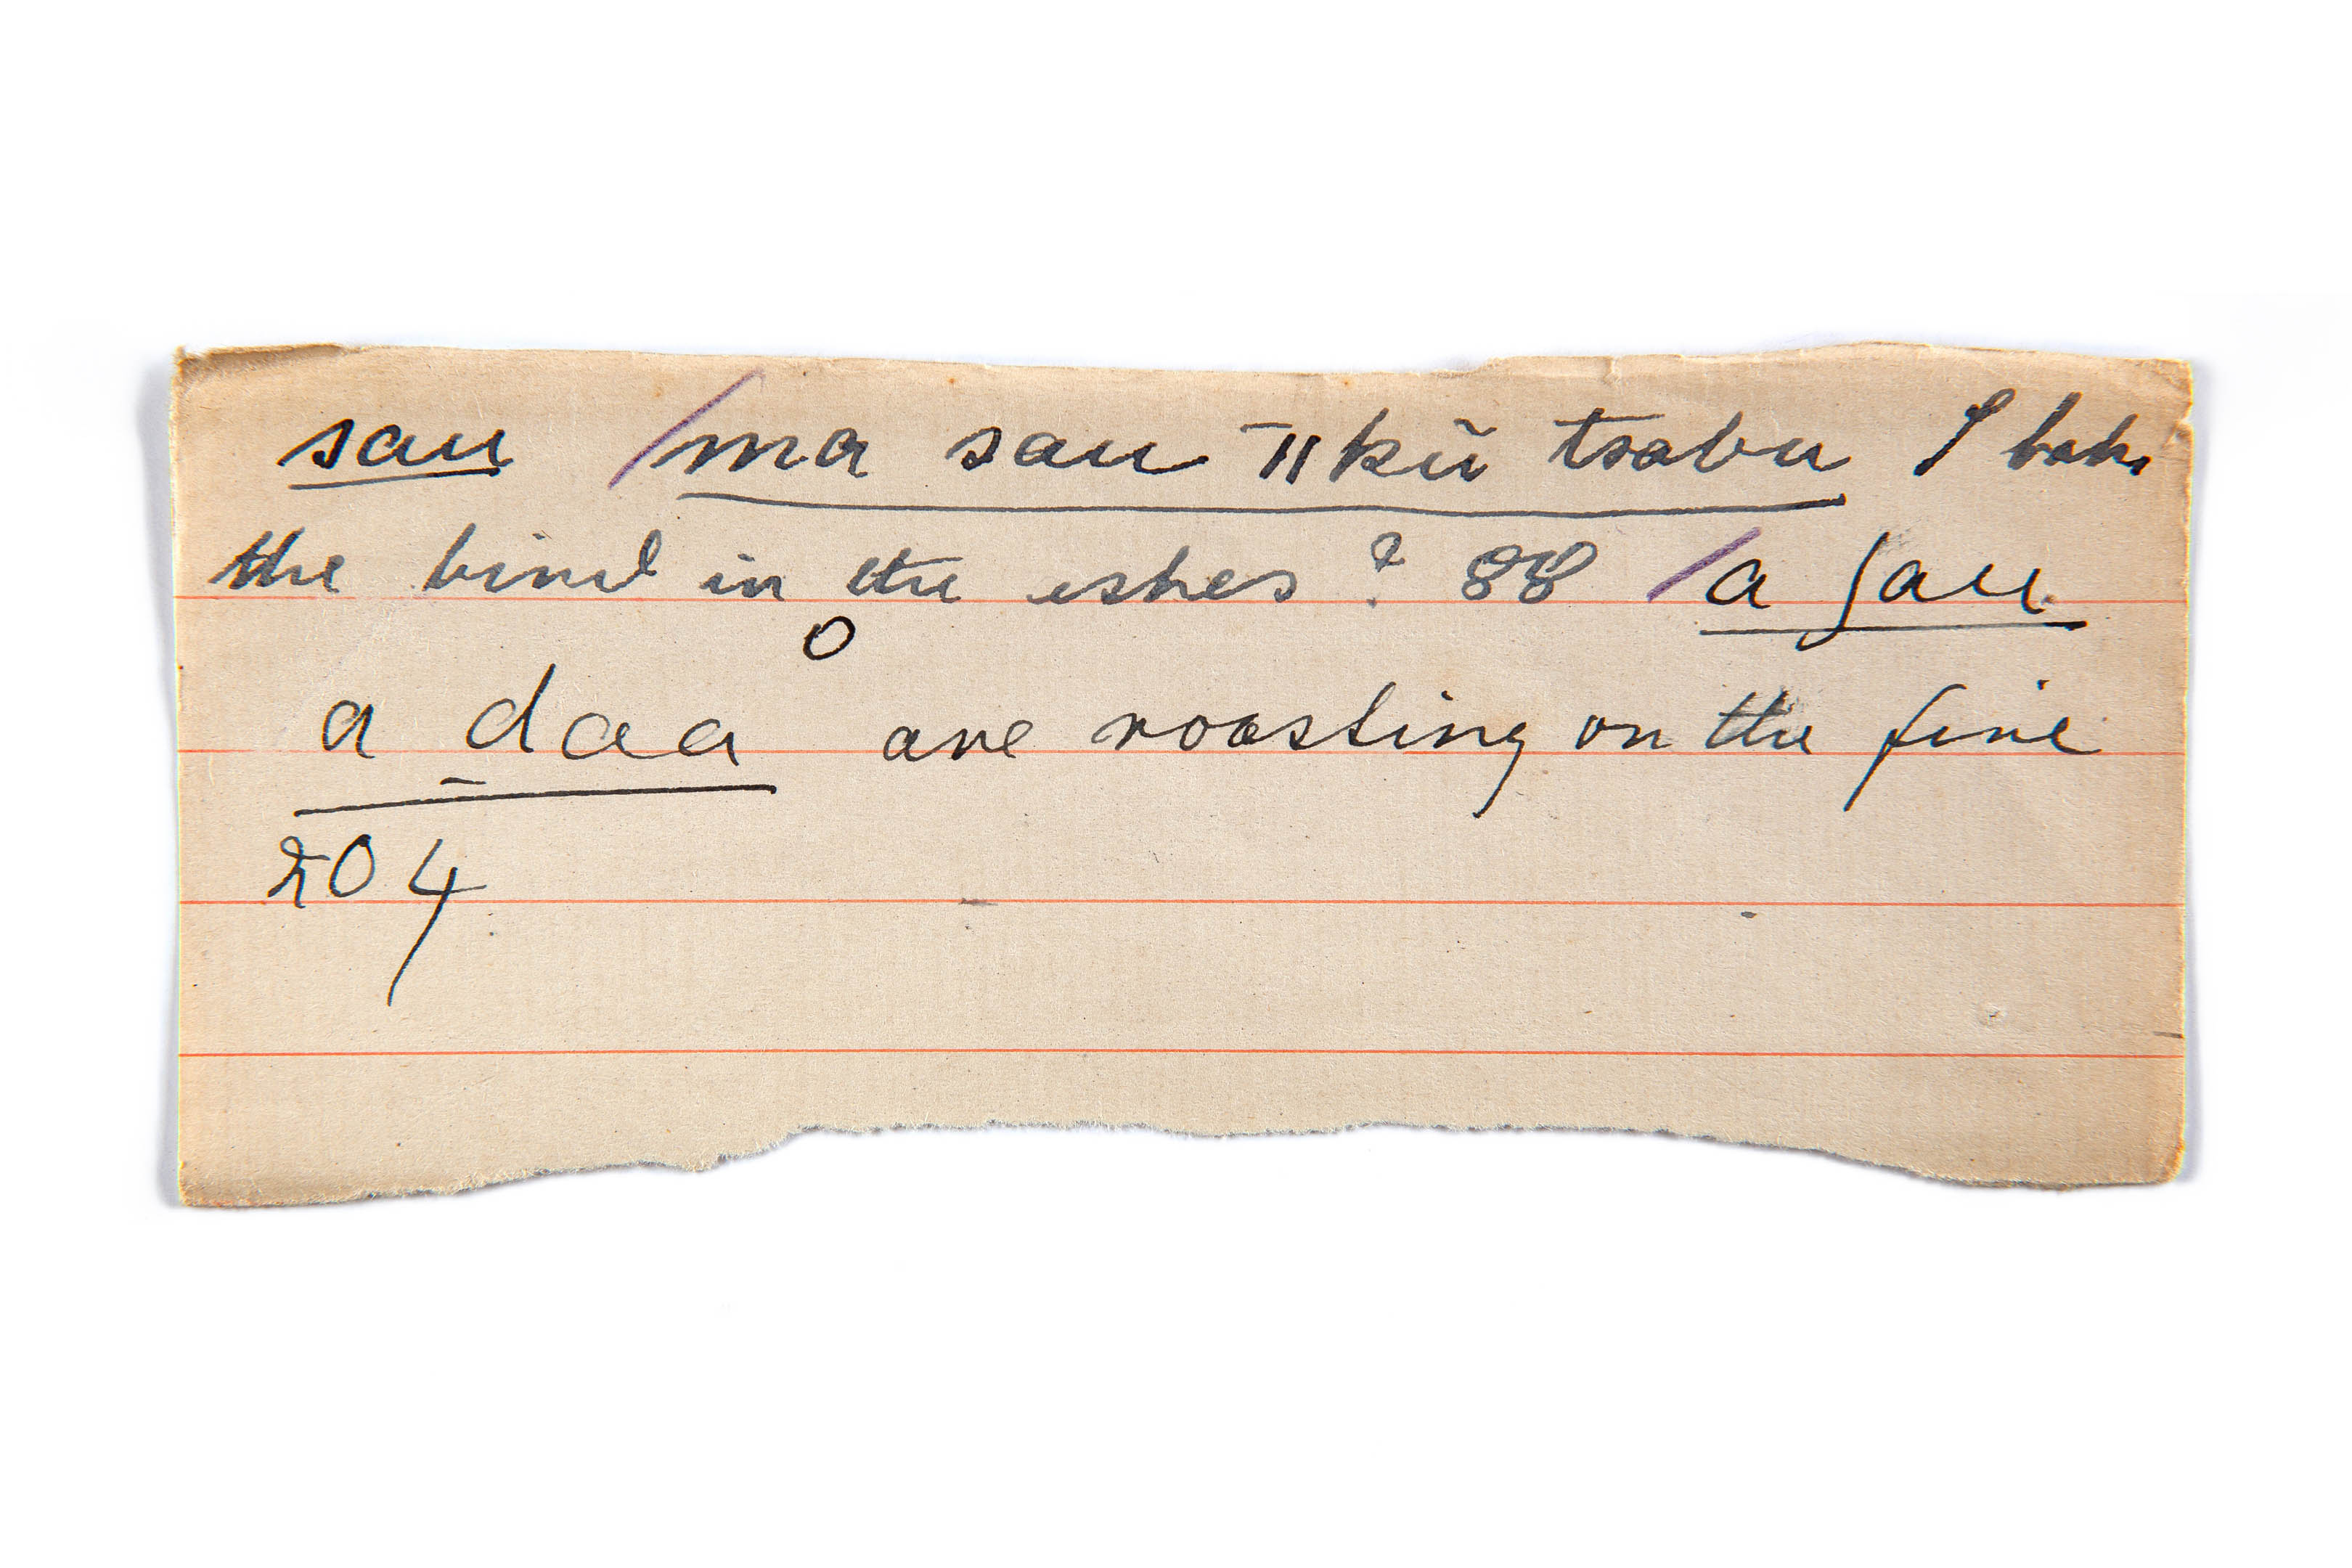 sau /ma sau ‾ǁkũ tsabu I bake
the bird in the ashes? 88 /a ʃau
a d̲aa are roasting on the fire
204